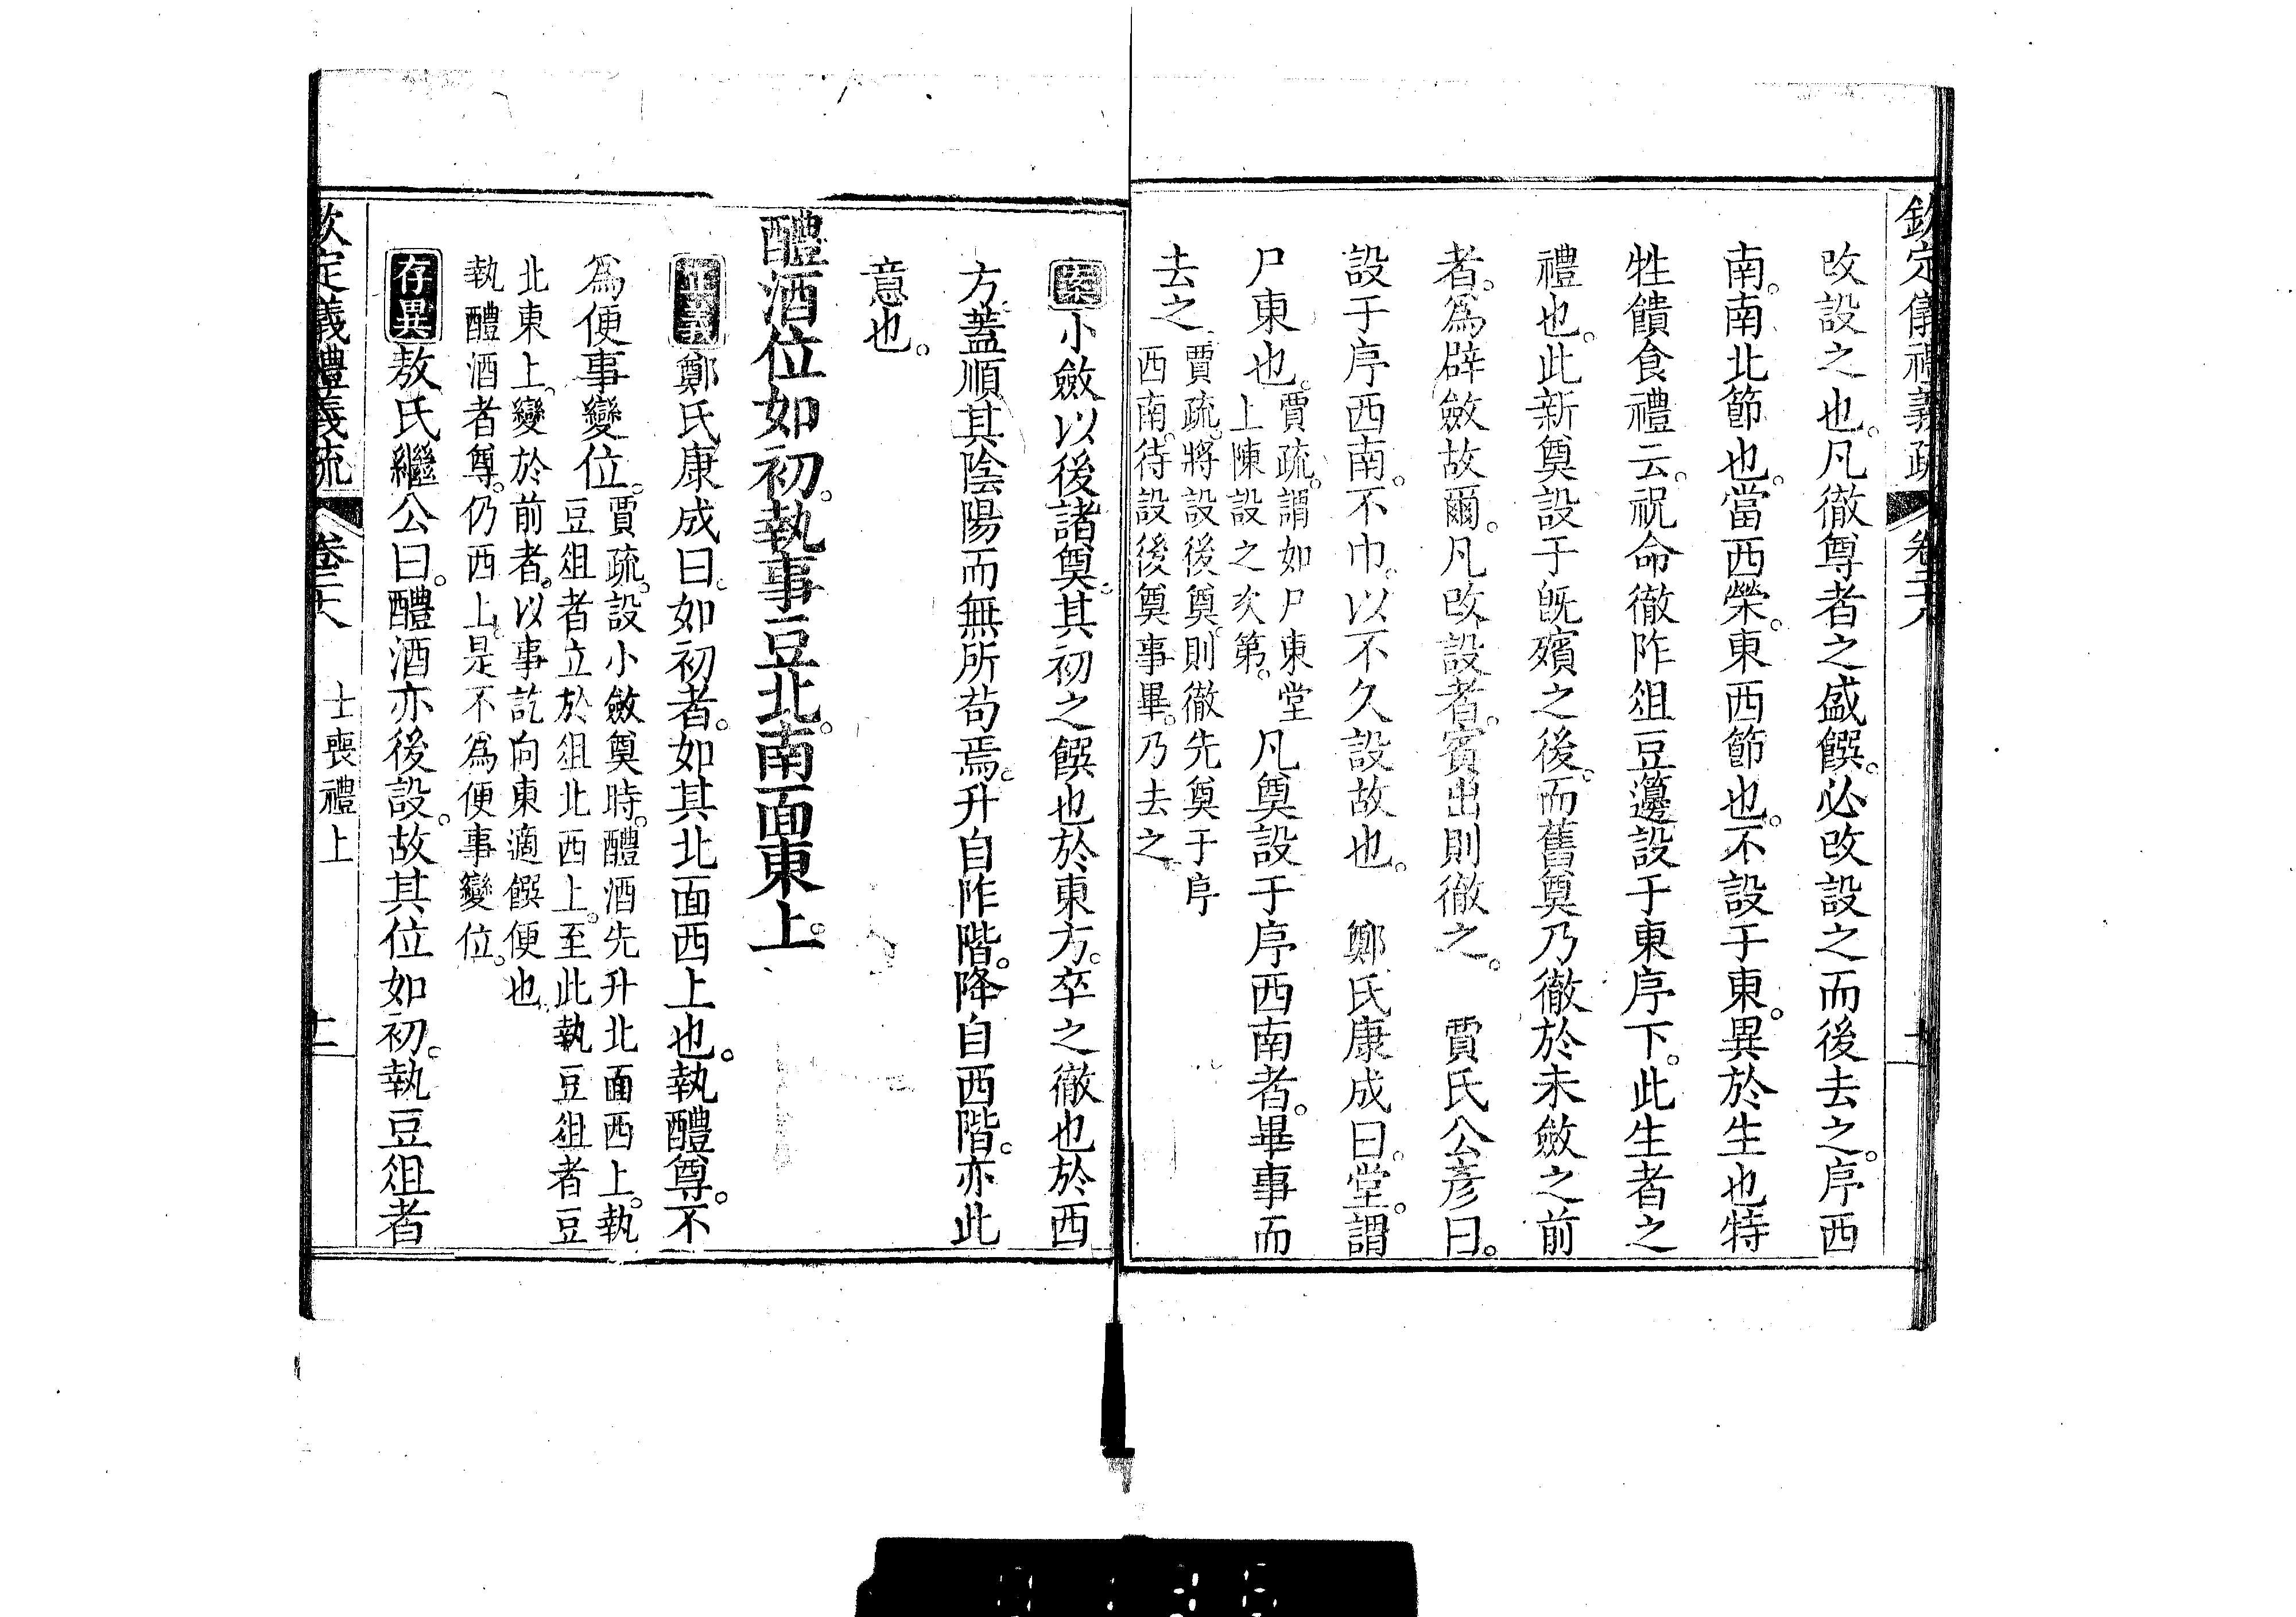 欽定儀禮義疏 卷二十八
改設之也。凡徹尊者之盛饌。必改設之而後去之。序西
南。南北節也。當西榮。東西節也。不設于東。異於生也。特
牲饋食禮云。祝命徹阼俎豆籩設于東序下。此生者之
禮也。此新奠設于旣殯之後。而舊奠乃徹於未斂之前
者。爲辟斂故爾。凡改設者。賓出則徹之。 賈氏公彥曰。
設于序西南。不巾。以不久設故也。 鄭氏康成曰。堂。謂
尸東也。賈疏。謂如尸東堂
上陳設之次第。凡奠設于序西南者。畢事而
去之 賈疏。將設後奠。則徹先奠于序
西南。待設後奠事畢。乃去之
案小斂以後諸奠。其初之饌也於東方。卒之徹也於西
方。蓋順其陰陽而無所苟焉。升自阼階。降自西階。亦此
意也。
醴酒位如初。執事豆北。南面東上。
正義鄭氏康成曰。如初者。如其北面西上也。執醴尊。不
爲便事變位。賈疏。設小斂奠時。醴酒先升北面西上。執
豆俎者立於俎北西上。至此執豆俎者豆
北東上。變於前者。以事訖向東適饌便也
執醴酒者尊。仍西上。是不爲便事變位。
存異敖氏繼公曰。醴酒亦後設。故其位如初。執豆俎者
欽定儀禮義疏 卷二十八 士喪禮上